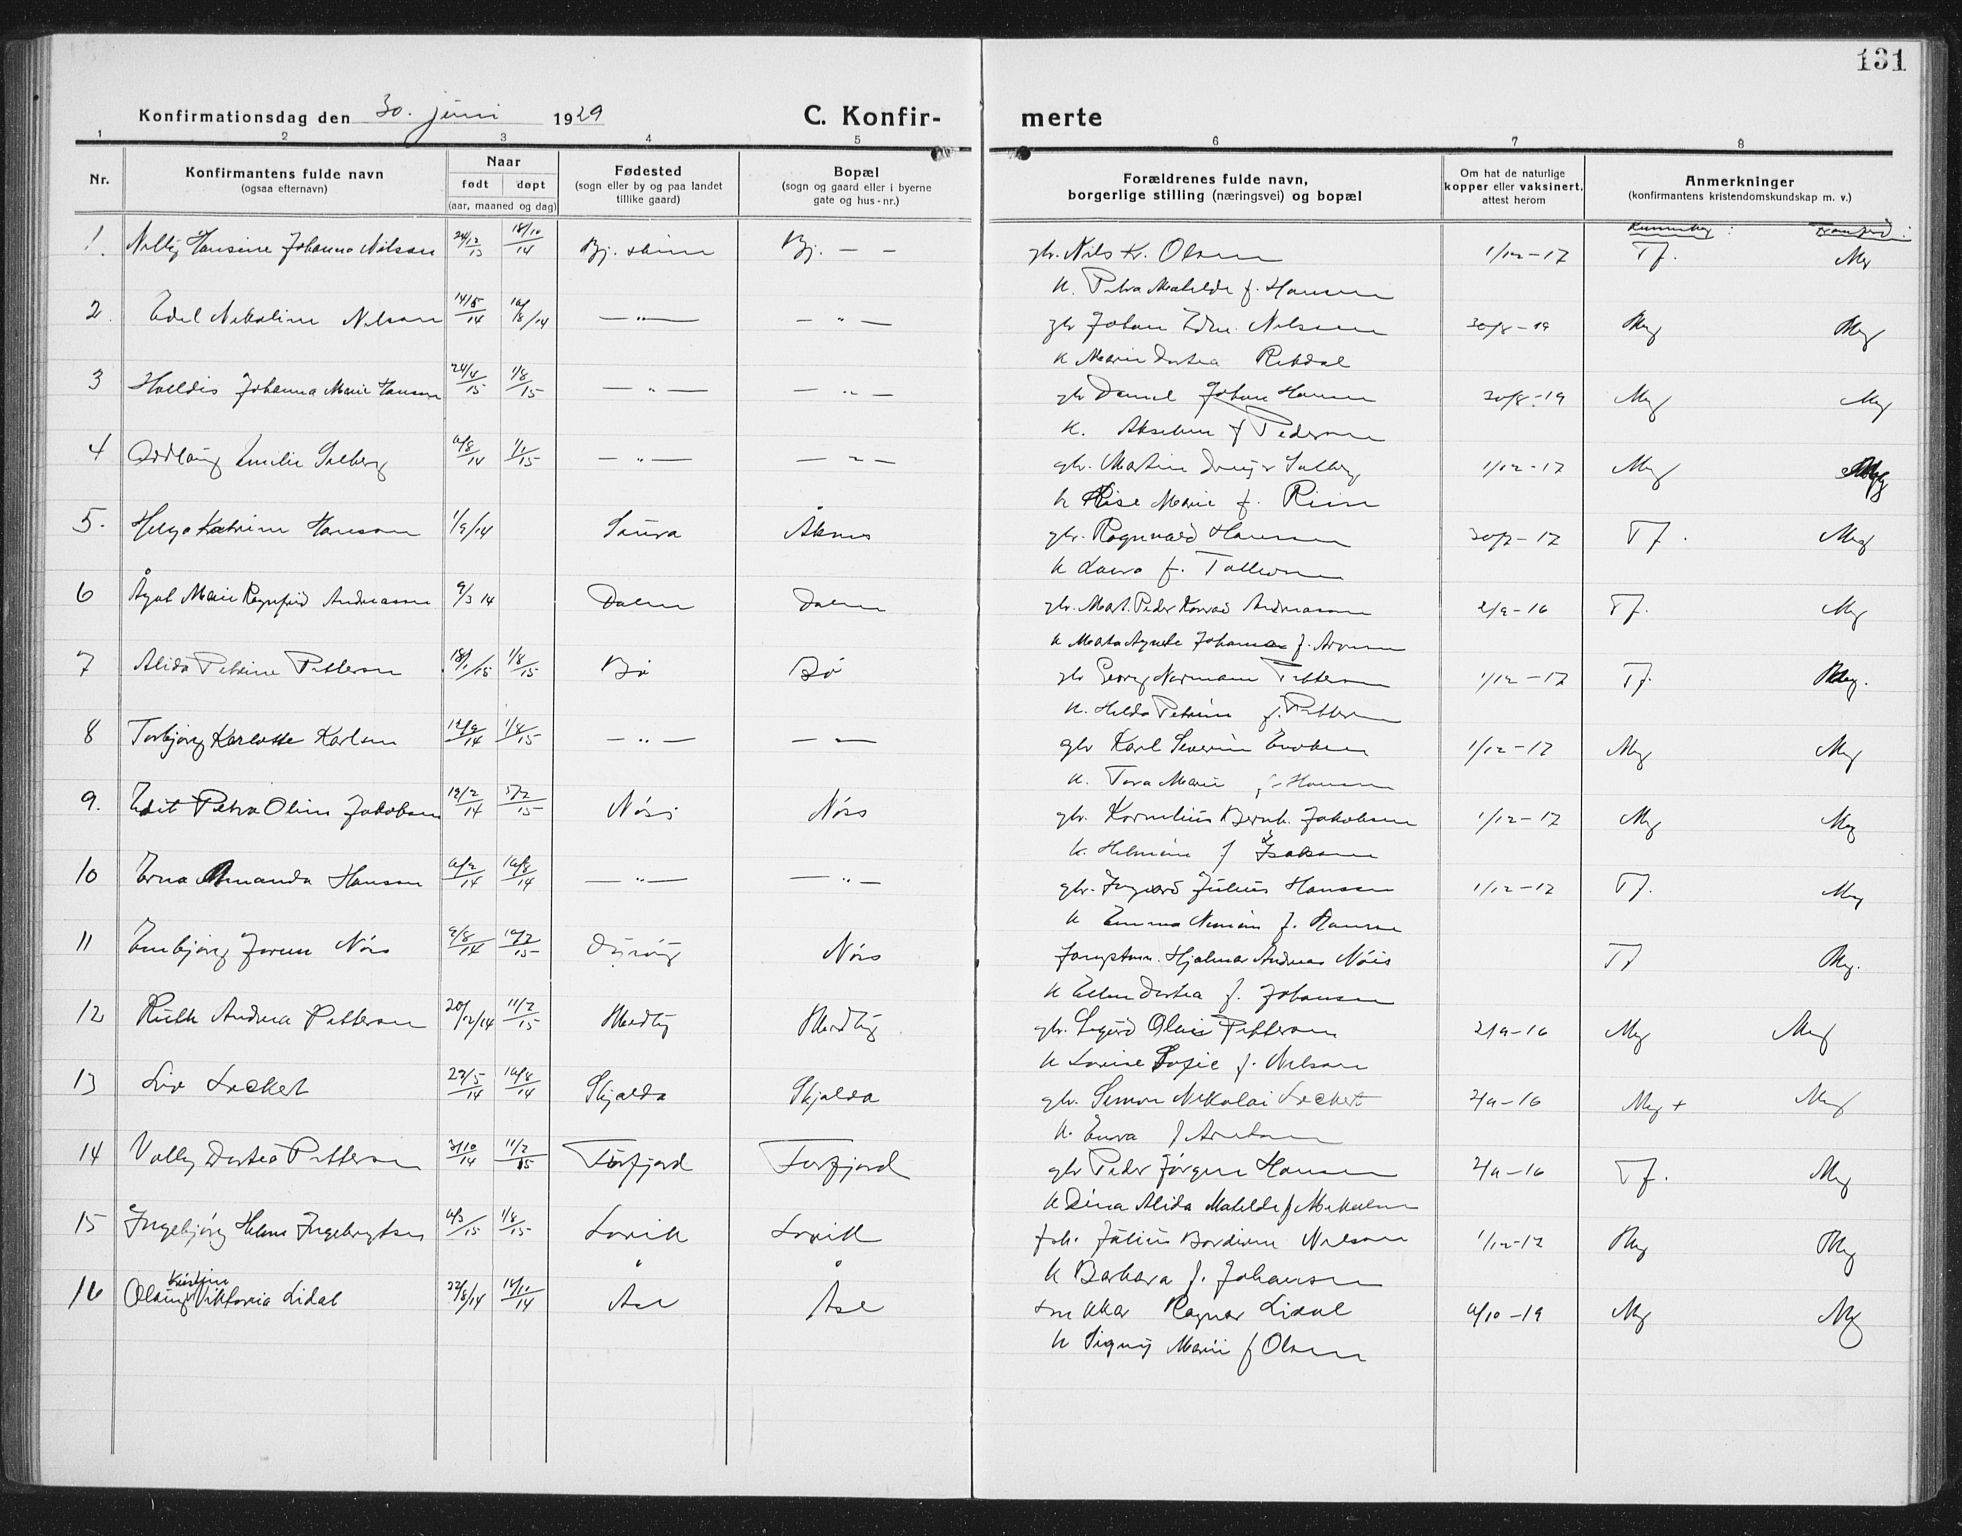 131
Konfirmationsdag den 30. juni 1929 C. Konfir- merte
1 2 3 4 5 6 7 8
Nr. Konfirmantens fulde navn (ogsaa efternavn) Naar født døpt (aar, maaned og dag) Fødested (sogn eller by og paa landet tillike gaard) Bopæl (sogn og gaard eller i byerne gate og hus-nr.) Forældrenes fulde navn, borgerlige stilling (næringsvei) og bopæl Om hat de naturlige kopper eller vaksinert, attest herom Anmerkninger (konfirmantens kristendomskundskap m. v.)
1. Nelly Hansine Johanna Nilsen 24/12 13 18/10 14 Bj. Bj. — — gbr. Nils Kr. Olsen 1/12-17 Tf. Mg
h. Petra Matilde f. Hansen
2. Edel Nikoline Nilsen 14/5 14 16/8/14 — „ — — „ — gbr Johan Edv. Nilssen 30/8-19 Mg Mg
h Marie Dortea Rekdal
3 Halldis Johanna Marie Hansen 24/4 15 1/8 15 — „ — — „ — gbr Daniel Johan Hansen 30/8-19 Mg Mg
h. f Pedersen
4 Oddlaug Emilie Solberg 14 1/1 15 — „ — — „ — gbr. Martin Solberg 1/12-17 Mg
h Marie f.
5. Helga Katrine Hansen 1/9/14 Saura Åknes gbr. Ragnvald Hansen 30/7-17 Tf. Mg
h Laura f.
6 Ågot Marie Ragnfrid Andreassen 9/3 14 Dalen Dalen gbr. Mat. Peder Konrad Andreassen 2/9-16 Tf. Mg
h Marta Agnete Johansen f. Aronsen
7 Alida Petrine Pettersen 18/1/15 1/8 15 Bø Bø gbr Georg Normann Pettersen 1/12-17 Tf Mg.
h. Hilda Petrine f. Pettersen
8 Torbjørg Karlotte Karlsen 12/9 14 1/8 15 — „ — — „ — gbr Karl Severin 1/12-17 Mg Mg
h. Tora Marie f. Hansen
9. Edit Petra Oline Jakobsen 12/2 14 15 Nøss Nøss gbr. Kornelius Bernh. Jakobsen 1/12-17 Mg Mg
h. Helmine f Isaksen
10 Erna Amanda Hansen 14 16/8 14 — „ — — „ — gbr. Ingvard Julius Hansen 1/12-17 Tf. Mg
h Emma f. Hansen
11 Jorun Nøis 9/8 14 15 Dyrøy Nøss Hjalmar Andreas Nøis Tf Mg.
h Ellen Dortea f. Johansen
12 Ruth Andrea Pettersen 20/12/14 11/2 15 Medby Medby gbr. Sigurd Olai Pettersen 2/9-16 Mg Mg
h Lovise Sofie f. Nilsen
13 Liv Lockert 14 16/8 14 Skjalda Skjalda gbr. Simon Nikolai Lockert 2/9-16 Mg+ Mg
h. f Arntsen
14 Vally Dortea Pettersen 3/10 14 11/2 15 Torfjord Torfjord gbr Peder Jørgen Hansen 2/9-16 Tf. Mg
h Dina Alida Matilde f Mikalsen
15 Ingebjørg Helene Ingebrigtsen 15 1/8 15 Lovik Lovik fsk. Julius Bordevin Nilsen 1/12-17 Mg Mg
h Barbara f. Johansen
16 Olaug Kristine Viktoria Lidal 22/8/14 14 Åse Åse Ragnar Lidal 6/10-19 Mg Mg
h Signy Marie f Olsen